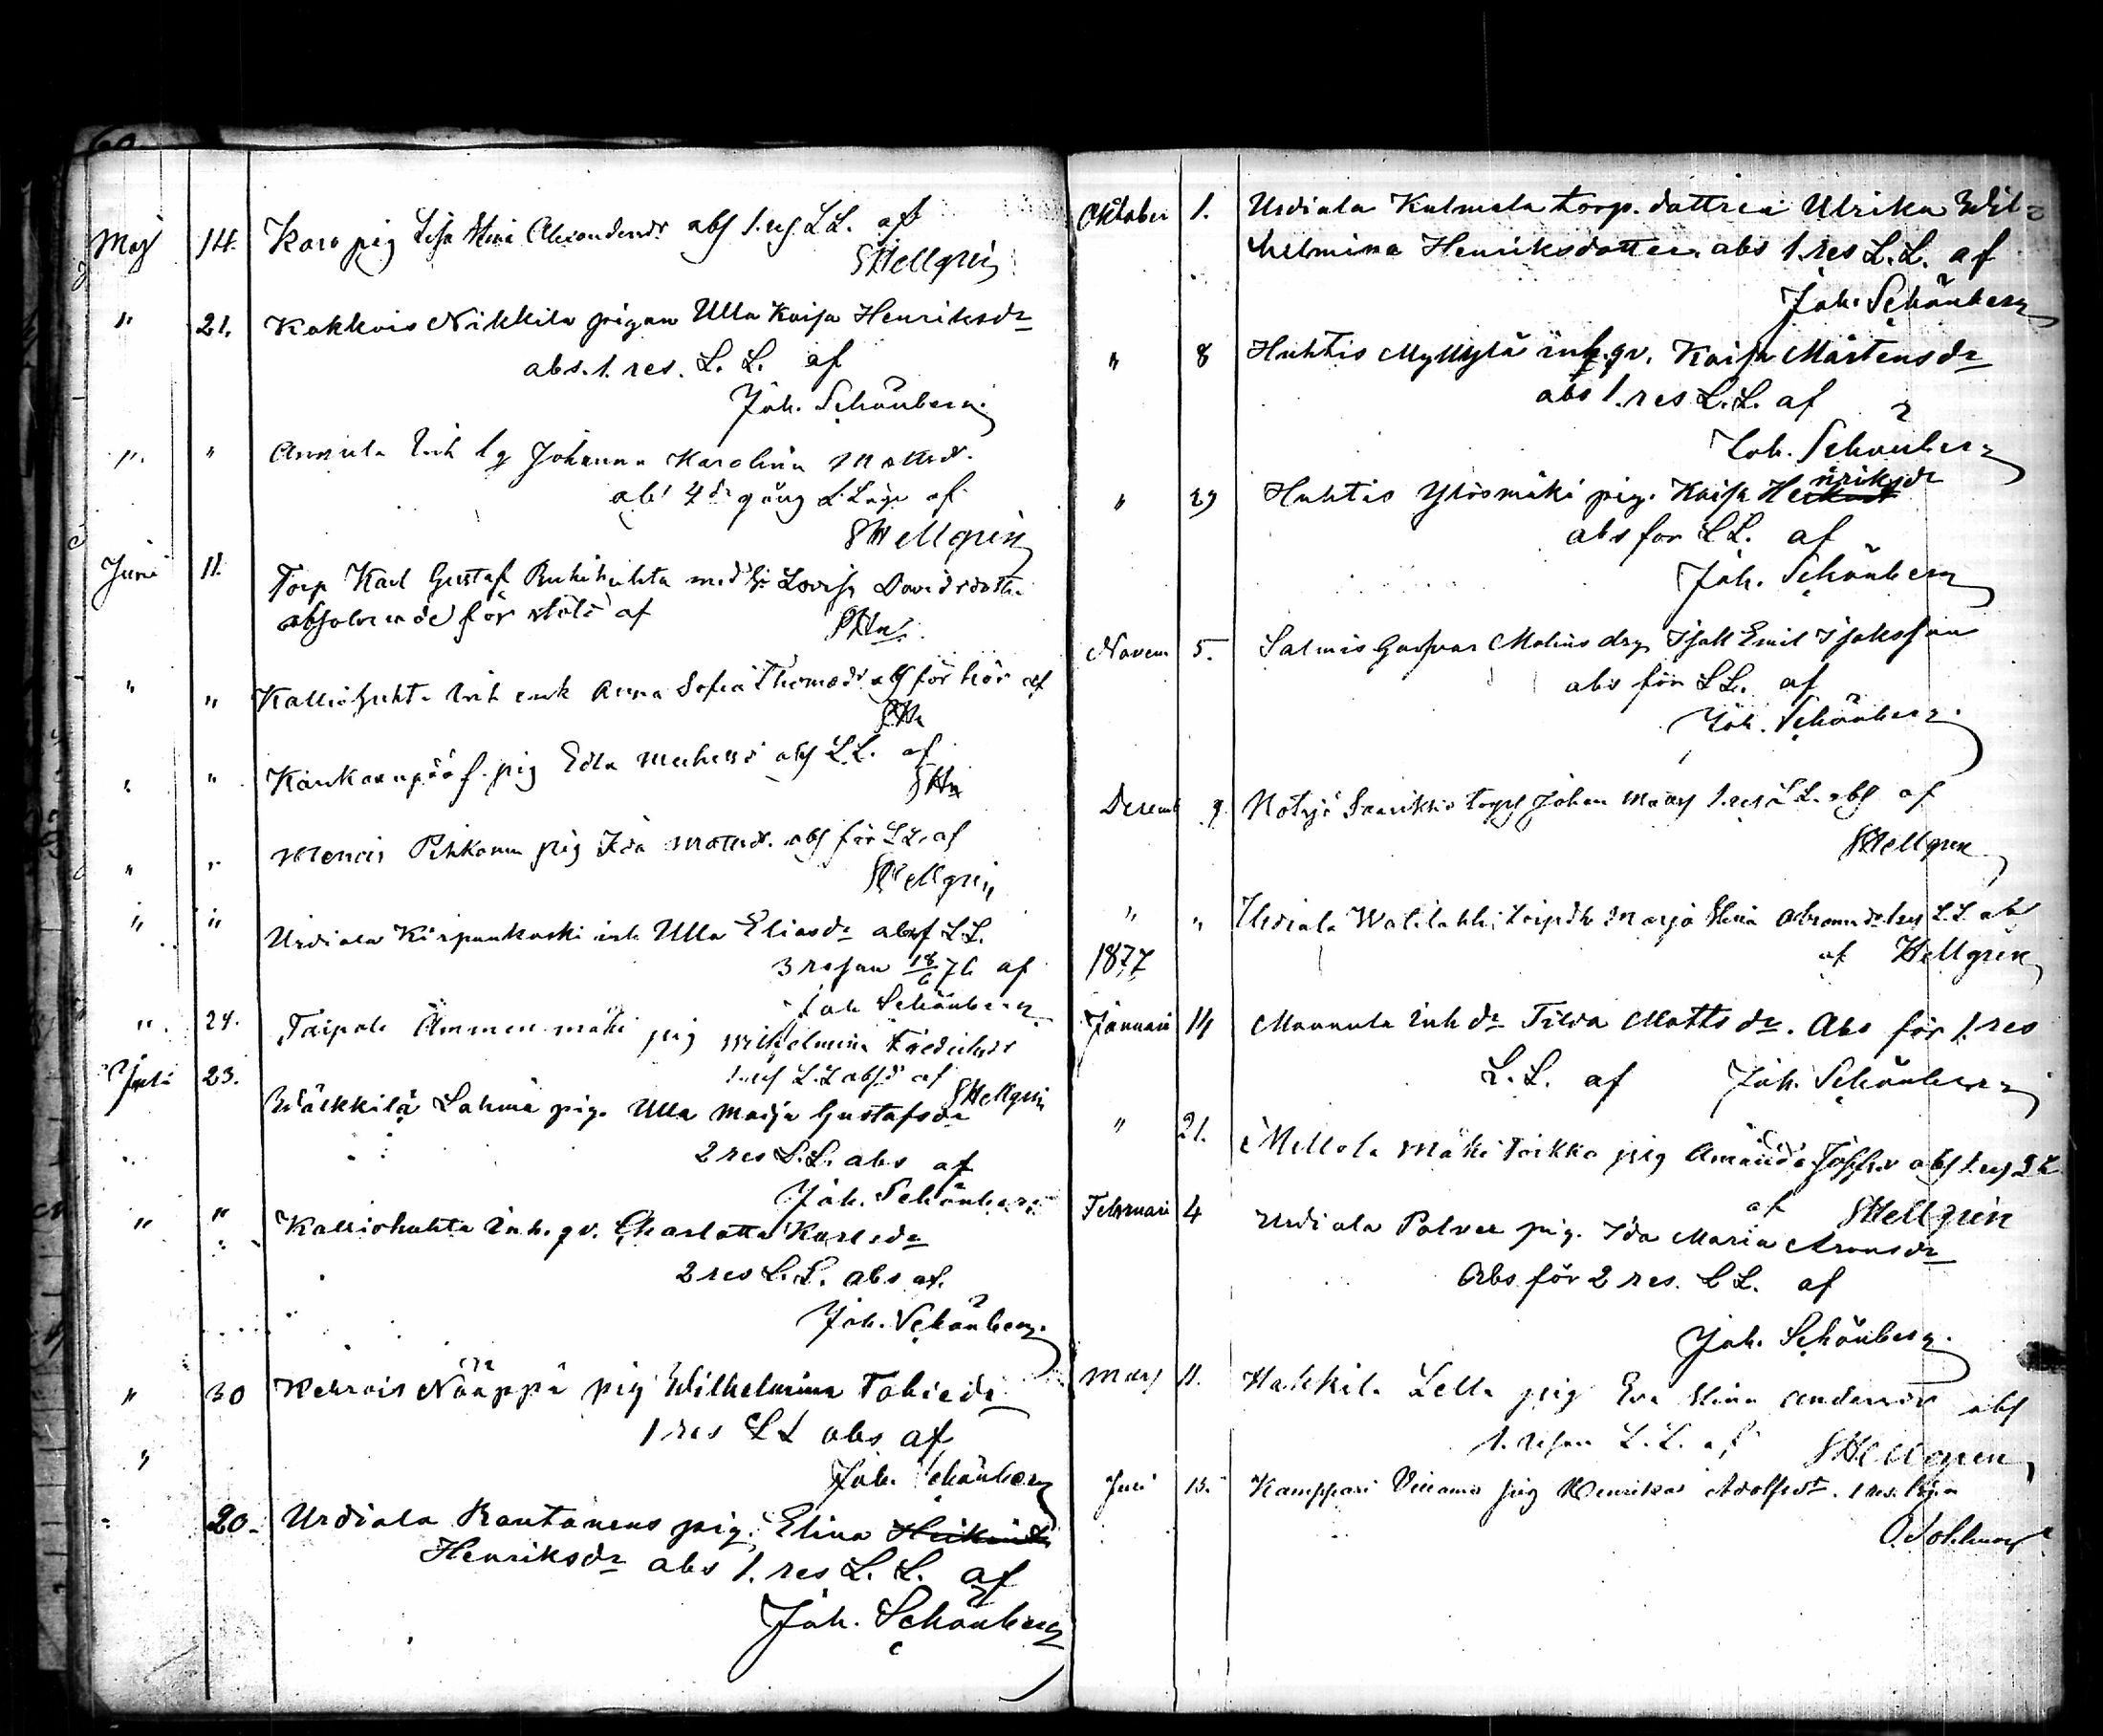 60
Maj 14. Karo pig Lisa Stina Alexandersdr abs 1. res L.L. af
SHellgrén
" 21. Kokkois Nikkilä pigan Ulla Kaisa Henriksdr
abs. 1. res. L. L. af
Joh. Schönberg.
" " Annula Inh Johanna Karolina Mattsd.
abs 4de gång L. Läge af
SHellgrén
Juni 11. Torp Karl Gustaf med Lovisa Davidsdotter
absolverade för af
SHn
" " Kalliohuhta Inh enk Anna Sofia Thomasdr för hör af
SHn
" " Kankaanpää f. pig Eda abs L.L. af
SHn
" " Menois Pihkanm pig Ida Mattsd. abs för L.L. af
SHellgrén
" " Urdiala Kirpunkoski inh Ulla Eliasdr abs af L.L.
3 resan 18/6 76 af
Joh Schönberg
" 24. Taipale Ämmenmäki pig Wilhelmina Fredriksdr
1. res L.L abs.d af SHellgrén
Juli 23. Wälkkilä Lahma pig. Ulla Maija Gustafsdr
2 res L.L. abs af
Joh. Schönberg
" " Kalliohuhta Inh. qv. Charlotta Karlsdr
2 res L.L. abs af.
Joh. Schönberg.
" 30 Kehrois Nääppä pig Wilhelmina Tobiedr
1 res L L abs af
"
Joh. Schönberg
20. Urdiala Rantanens pig. Elina
Henriksdr abs 1. res L. L. af
Joh. Schönberg
Oktober 1. Urdiala Kulmala torp. dottren Ulrika Wil-
helmina Henriksdotter. abs 1. res L.L. af
Joh. Schönberg
" 8 Huhtis Myllylä inh. qv. Kaisa Mårtensdr
abs 1. res L.L. af
Joh. Schönberg
" 29 Huhtis Yliismäki pig. Kaisa Henriksdr
abs for L L. af
Joh. Schönberg
Novem 5. Salmis Malins drg. Isak Emil Isaksson
abs för L L. af
Joh. Schönberg.
Decemb 9. Notsjö Johan 1. res L L. abs af
SHellgrén
" " Urdiala Marja Stina L L abs
af Hellgrén
1877
Januari 14 Mannula Inh dr Tilda Mattsdr. Abs för 1. res
L. L. af Joh. Schönberg
" 21. Mellola Mäki Torkko pig Amanda abs 1. res L L
af SHellgrén
Februari 4 Urdiala Palvee pig. Ida Maria Aronsdr
Abs för 2 res. L L. af
Joh. Schönberg.
Mars 11. Hakkila Lella pig Eva Stina Andersdr abs
1. resan L. L. af SHellgrén
Juni 13. Kamppari pig Henrika Adolfsdr. 1 res.